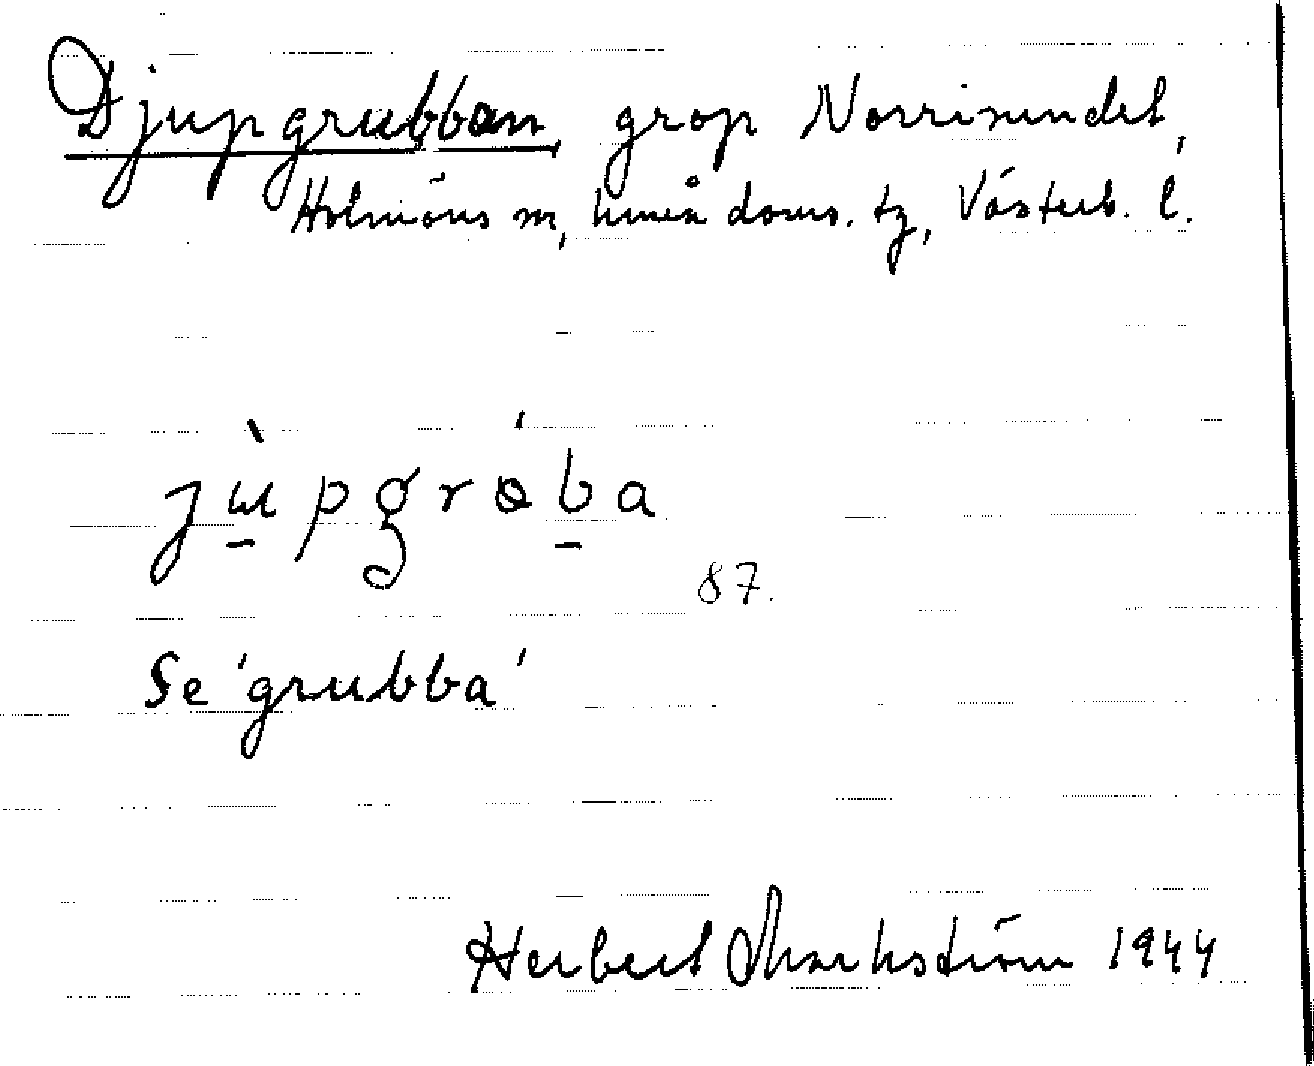 Djupgrubban, grop Norrisundet,
Holmöns sn, Umeå doms. tg, Västerb. l.
jùpgrába
87.
Se 'grubba'
Herbert Markström 1944